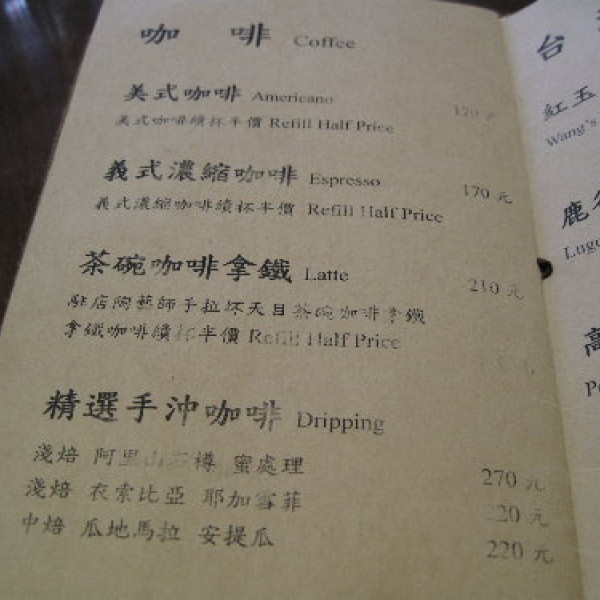 咖 啡 Coffee
美式咖啡 Americano 170 元
美式咖啡續杯半價 Refill Half Price
義式濃縮咖啡 Espresso 170 元
義式濃縮咖啡續杯半價 Refill Half Price
茶碗咖啡拿鐵 Latte 210 元
駐店陶藝師手拉坏天目茶碗咖啡拿鐵
拿鐵咖啡續杯半價 Refill Half Price
精選手沖咖啡 Dripping
淺焙 阿里山 樽 蜜處理 270 元
淺焙 衣索比亞 耶加雪菲 220 元
中焙 瓜地馬拉 安提瓜 220 元
台
紅玉
Wang's
鹿
Lugu
高